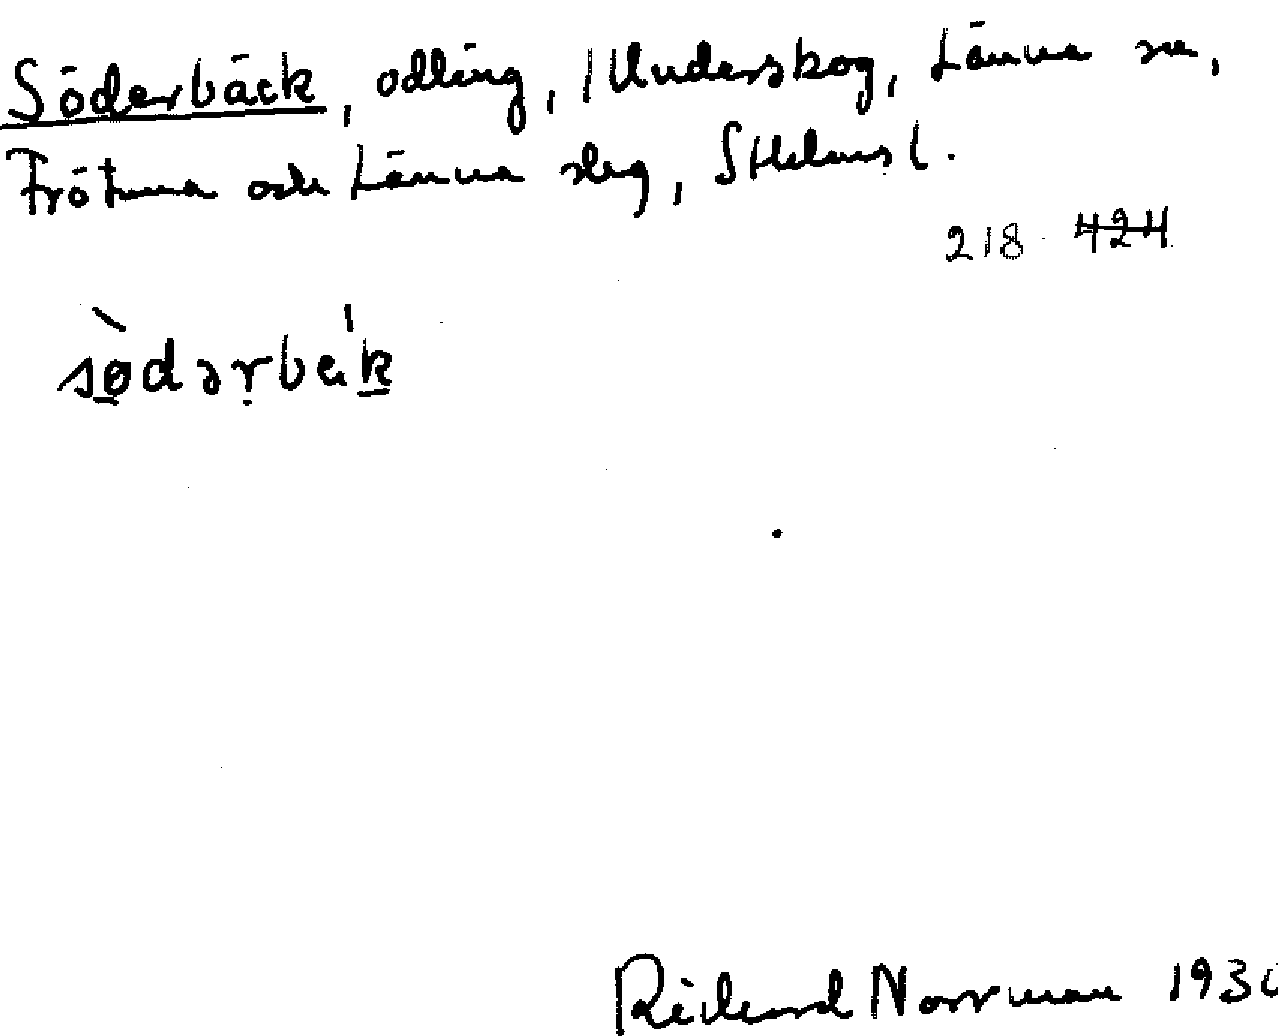 Söderbäck, odling, /Underskog, Länna sn,
Frötuna och Länna slg, Sthlms l.
218 424
sö̀dərbäˈk
Richard Norrman 1930